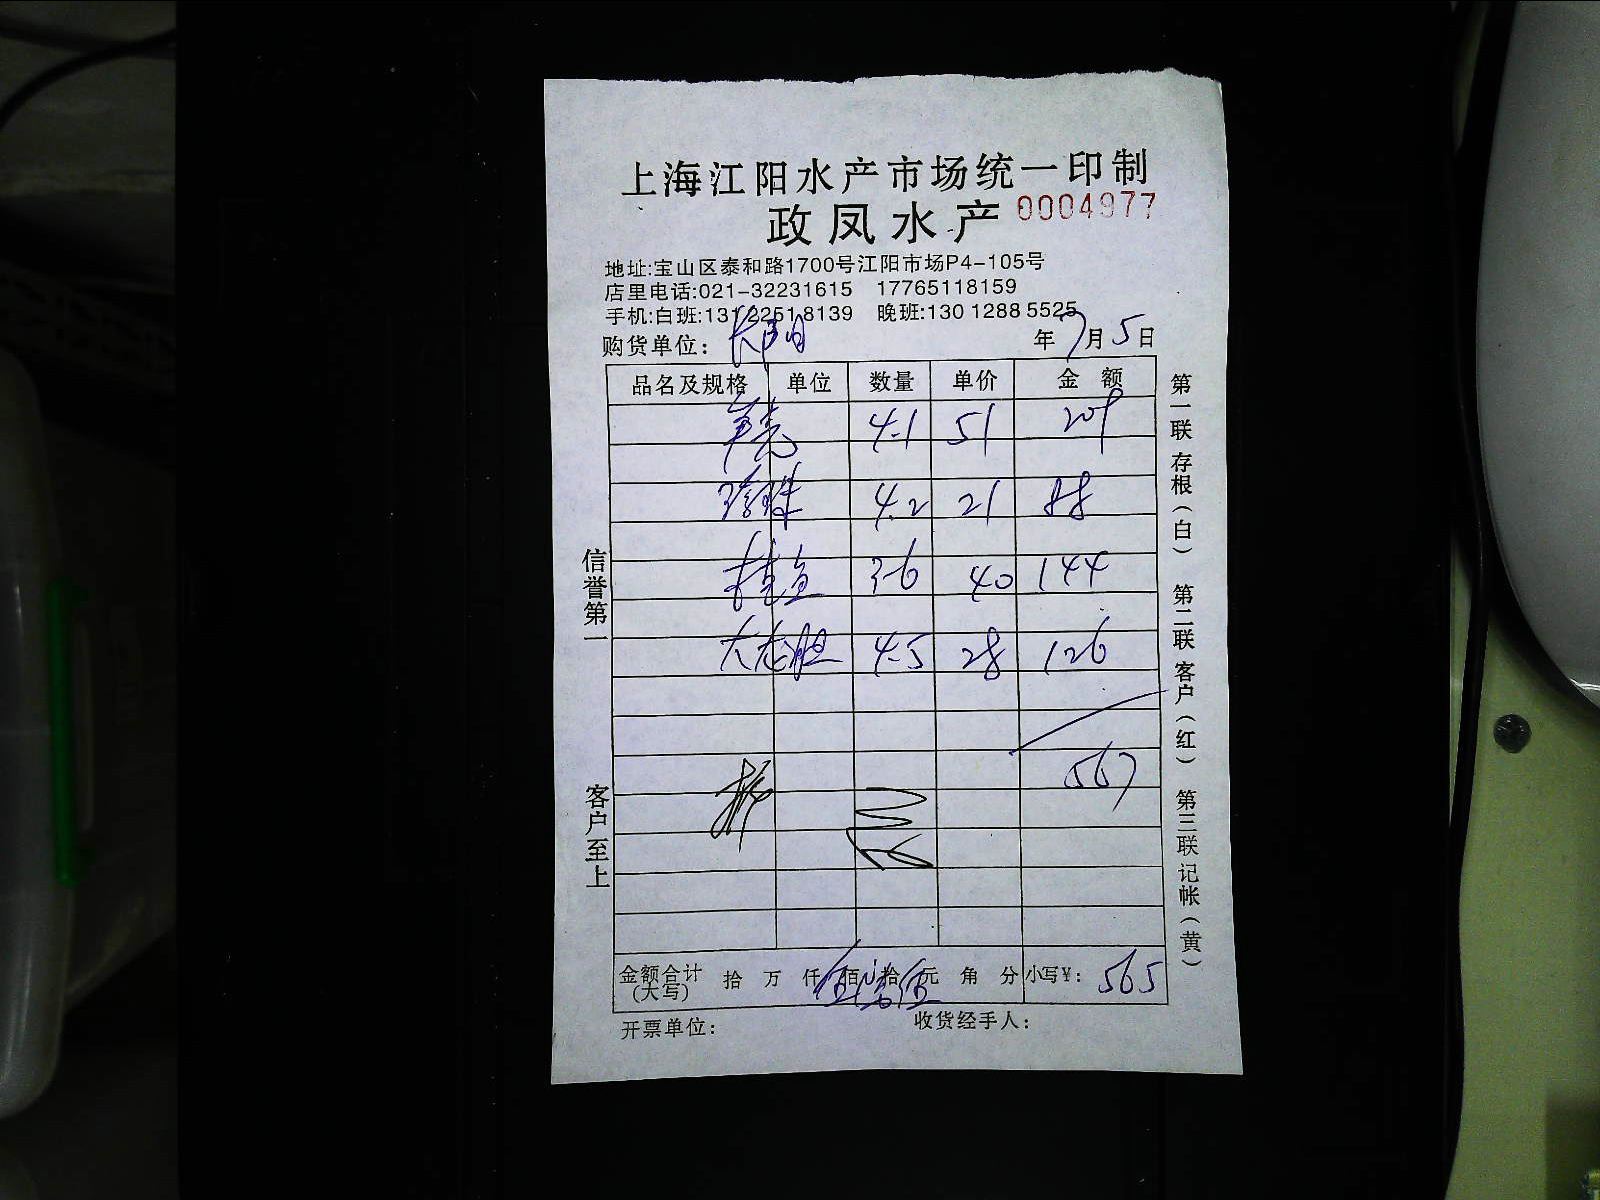 上海江阳水产市场统一印制
政凤水产 0004977
地址:宝山区泰和路1700号江阳市场P4-105号
店里电话:021-32231615 17765118159
手机:白班:131 2251 8139 晚班:130 1288 5525
购货单位: 长阳 年 7月 5日
品名及规格 单位 数量 单价 金 额
4.1 51 209
珍珠 4.2 21 88
桂鱼 3.6 40 144
大龙胆 4.5 28 126
567
金额合计(大写) 拾 万 仟 佰 拾 元 角 分 小写¥: 565
开票单位: 收货经手人:
信誉第一
客户至上
第一联 存根(白) 第二联 客户(红) 第三联 记帐(黄)